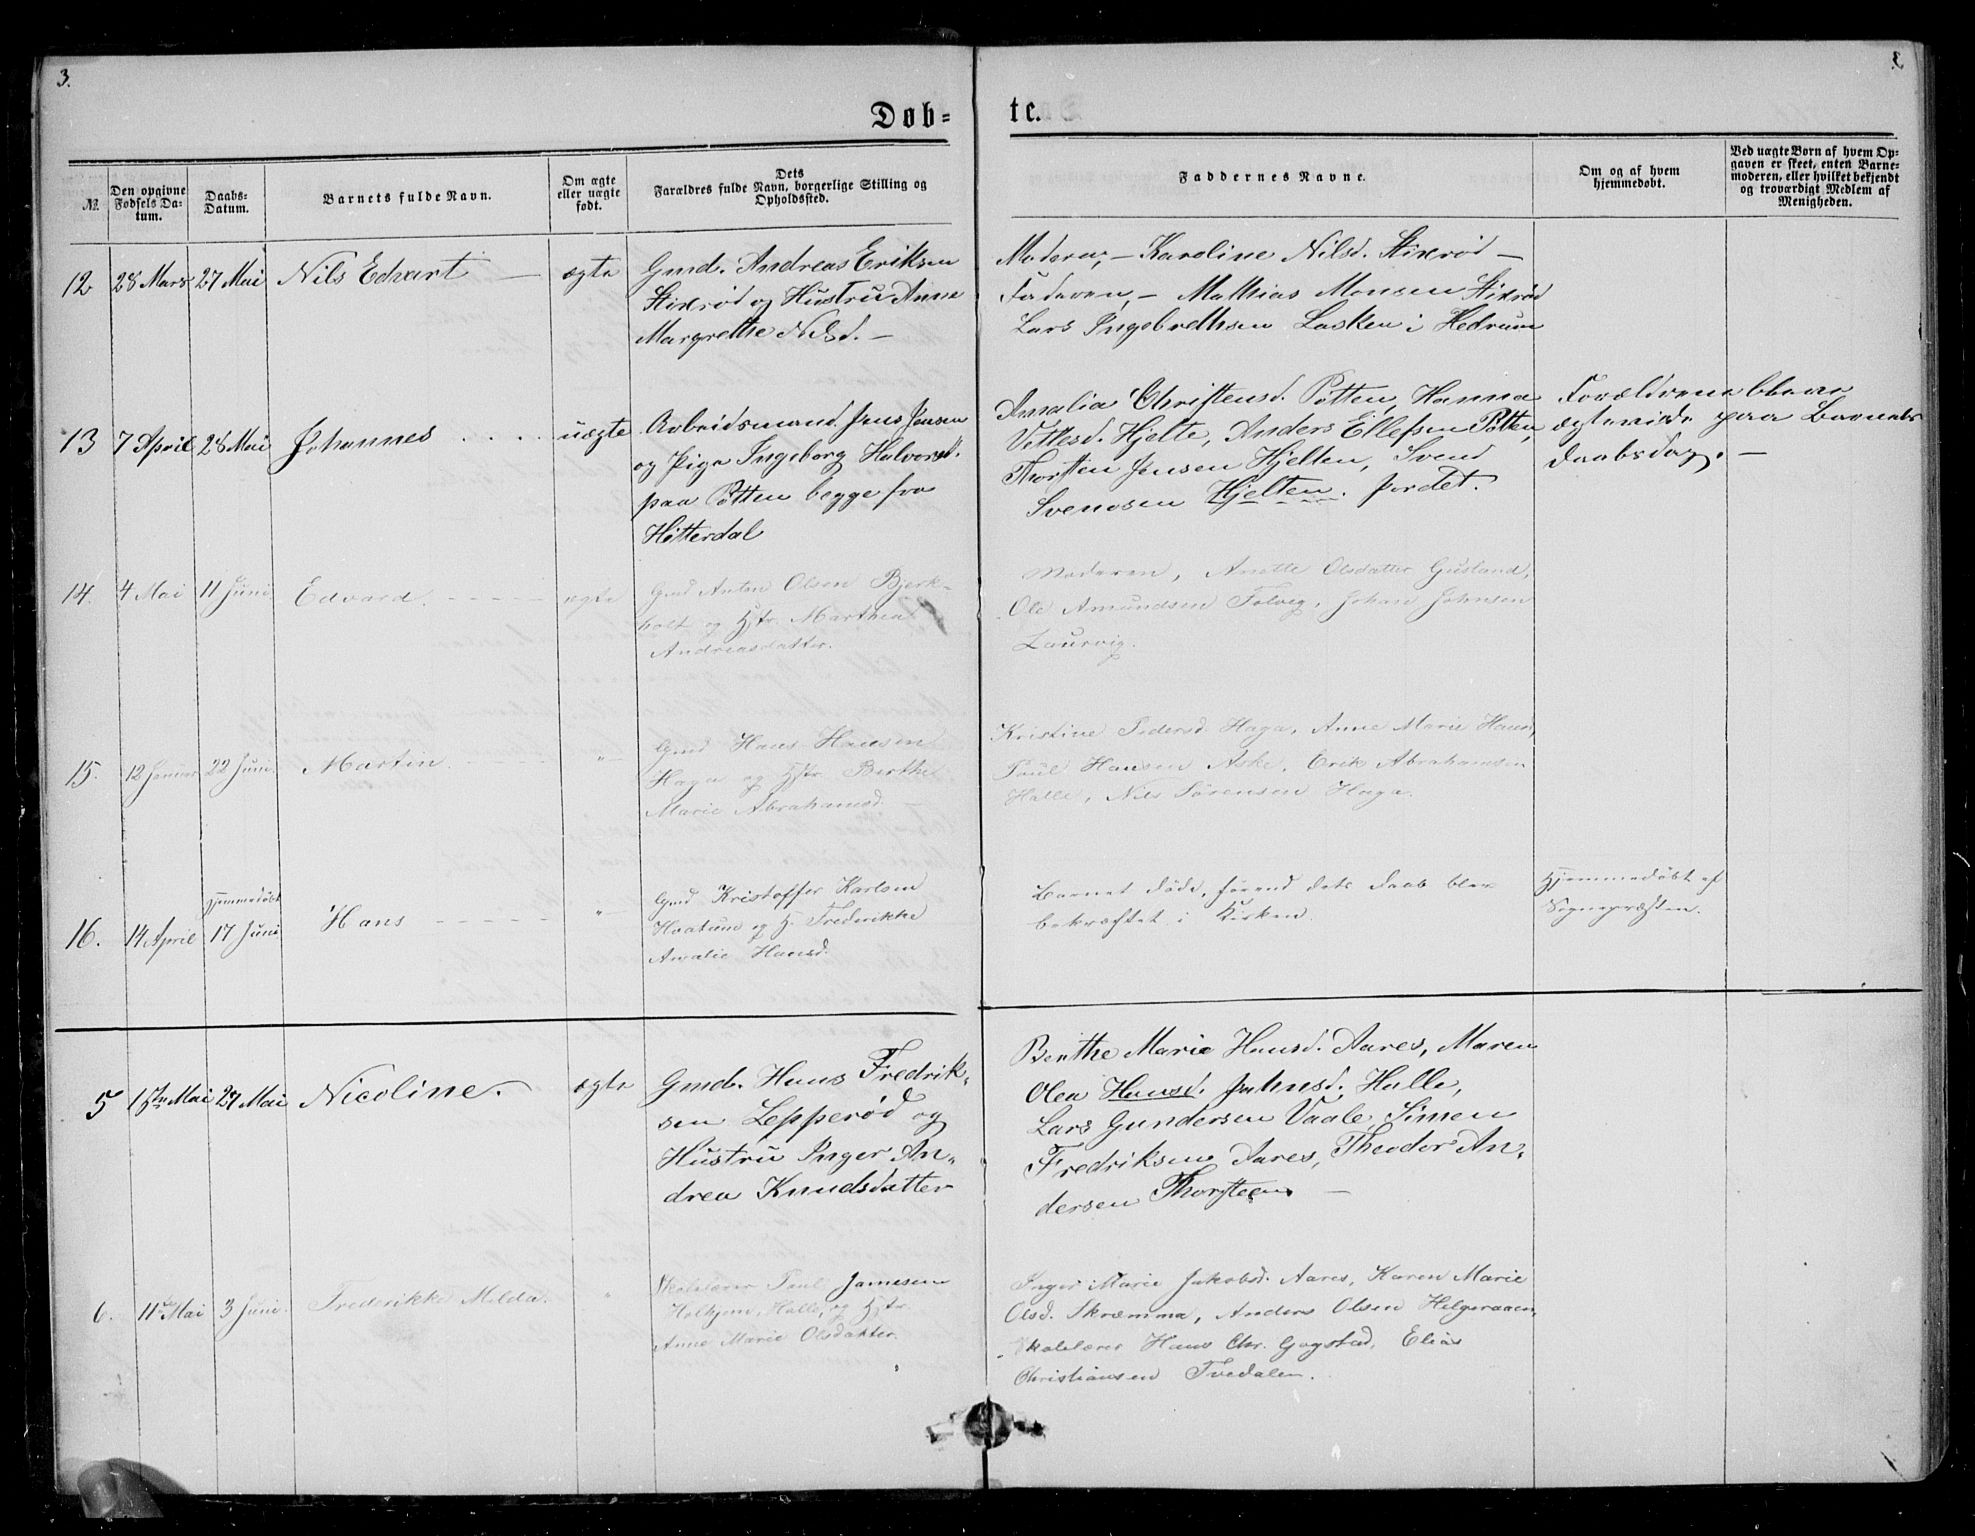 3.
Døb-
te.
№.
Den opgivne Fødsels Datum.
Daabs-Datum.
Barnets fulde Navn.
Om ægte eller uægte født.
Dets Forældres fulde Navn, borgerlige Stilling og Opholdssted.
Faddernes Navne.
Om og af hvem hjemmedøbt.
Ved uægte Børn af hvem Opgaven er skeet, enten Barnemoderen, eller hvilket bekjendt og troværdigt Medlem af Menigheden.
12 28 Mars 27 Mai Nils Edvart — ægte
Gmd. Andreas Eriksen
Stixrød og Hustru Anne
Margrethe Nilsd. —
Moderen, — Karoline Nilsd. Stixrød —
Faderen, — Mathias Monsen Stixrød
Lars Ingebrethsen Lasken i Hedrum
13 7 April 28 Mai Johannes . . . . uægte
Arbeidsmand Jens Jensen
og Pige Ingeborg Halvorsd.
paa Pøtten begge fra
Hitterdal
Amalia Christensd. Pøtten, Hanna
Vetlesd. Hjelte, Anders Ellefsen Pøtten,
Thorsten Jensen Hjelten, Svend
Svendsen Hjelten. fordet.
Forældrene bleve
ægteviede paa Barnets
Daabsdag. —
14. 4 Mai 11 Juni Edvard. - - - - - ægte
Gmd Anton Olsen Bjerk-
holt og Hstr. Marthea
Andreasdatter.
Moderen, Anette Olsdatter Gusland,
Ole Amundsen Tolvig, Johan Johnsen
Laurvig.
15. 12 Januar 22 Juni. Martin. - - - - - "
Gmd Hans Hansen
Haga og Hstr. Berthe
Marie Abrahamsd. —
Kristine Pedersd Haga, Anne Marie Hansd,
Poul Hansen Aske, Erik Abrahamsen
Halle, Nils Sörensen Haga.
16. 14 April
Hjemmedøbt
17 Juni Hans - - - - - "
Gmd Kristoffer Karlsen
Hvatum og H. Frederikke
Amalie Hansd.
Barnet døde, førend dets Daab blev
bekræftet i Kirken.
Hjemmedøbt af
Sognepræsten.
5 15de Mai 27 Mai Nicoline. ægte
Gmd. Hans Fredrik-
sen Lepperød og
Hustru Inger An-
drea Knudsdatter
Berthe Marie Hansd. Aares, Maren
Olea Hansd. Johnsd. Halle,
Lars Gundersen Vaale, Simen
Fredriksen Aares, Theodor An-
dersen Thorsteen —
6. 11te Mai 3 Juni. Frederikke Melda. "
Skolelærer Poul Jamesen
Holhjem, Halle, og Hstr.
Anne Marie Olsdatter.
Inger Marie Jakobsd. Aares, Karen Marie
Olsd. Skræmma, Anders Olsen Helgeraaen,
Skolelærer Hans Chr. Gogstad, Elias
Christiansen Tvedalen.